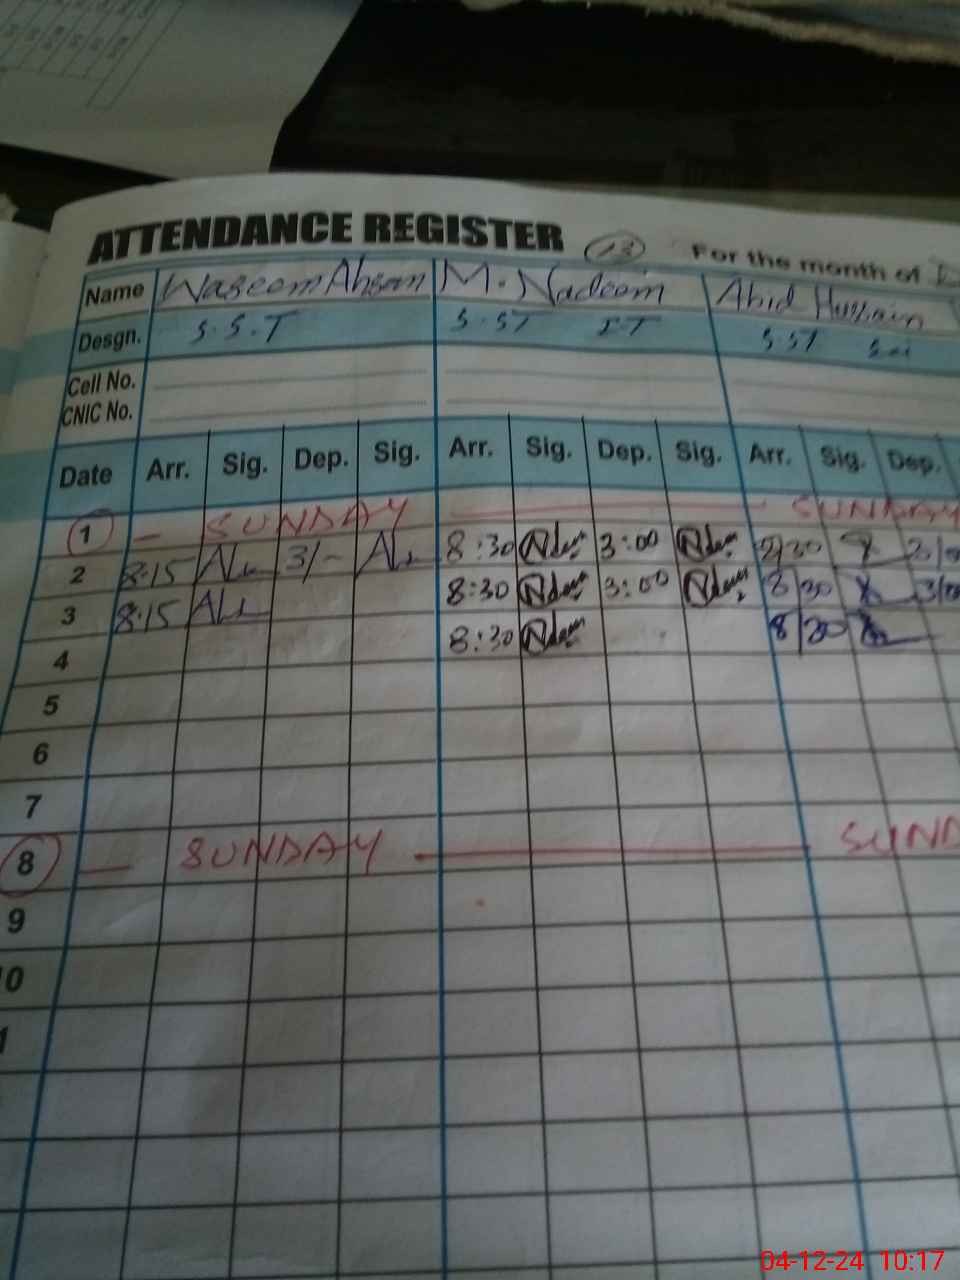 ATTENDANCE REGISTER 13 For the month of
Name Waseem Ahsan M. Nadeem Abid Hussain
Desgn. S.S.T S.ST I.T S.ST Sci
Cell No.
CNIC No.
Date Arr. Sig. Dep. Sig. Arr. Sig. Dep. Sig. Arr. Sig. Dep.
1 — SUNDAY — SUNDAY
2 8:15 3/- 8:30 3:00 8/30
3 8:15 8:30 3:00 8/30
4 8:30 8/30
5
6
7
8 — SUNDAY — SUND
9
04-12-24 10:17